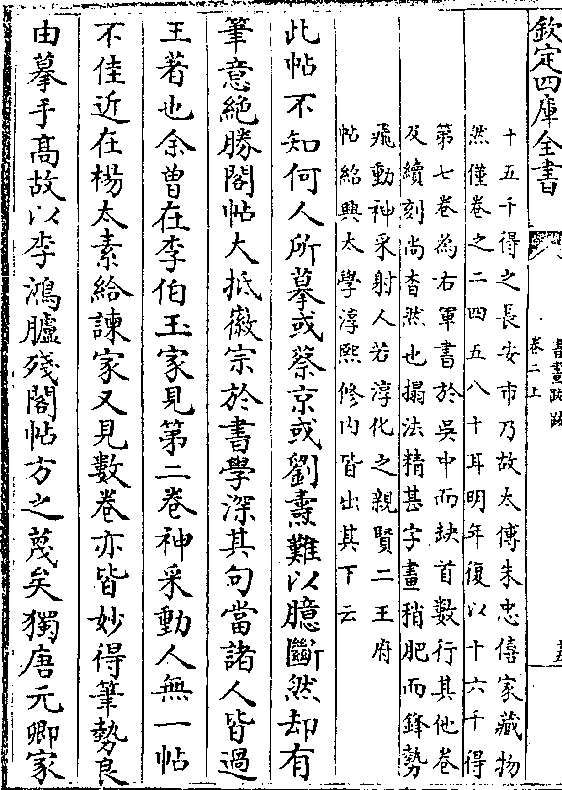 欽定四庫全書
書畫跋跋
卷二上
十五千得之長安市乃故太傅朱忠僖家藏物
然僅卷之二四五八十耳明年復以十六千得
第七卷為右軍書於吳中而缺首數行其他卷
及續刻尚杳然也搨法精甚字畫稍肥而鋒勢
飛動神采射人若淳化之親賢二王府
帖紹興太學淳熙修内皆出其下云
此帖不知何人所摹或蔡京或劉燾難以臆斷然却有
筆意絶勝閣帖大抵徽宗於書學深其句當諸人皆過
王著也余曽在李伯玉家見第二卷神采動人無一帖
不佳近在楊太素給諫家又見數卷亦皆妙得筆勢良
由摹手髙故以李鴻臚殘閣帖方之蔑矣獨唐元卿家